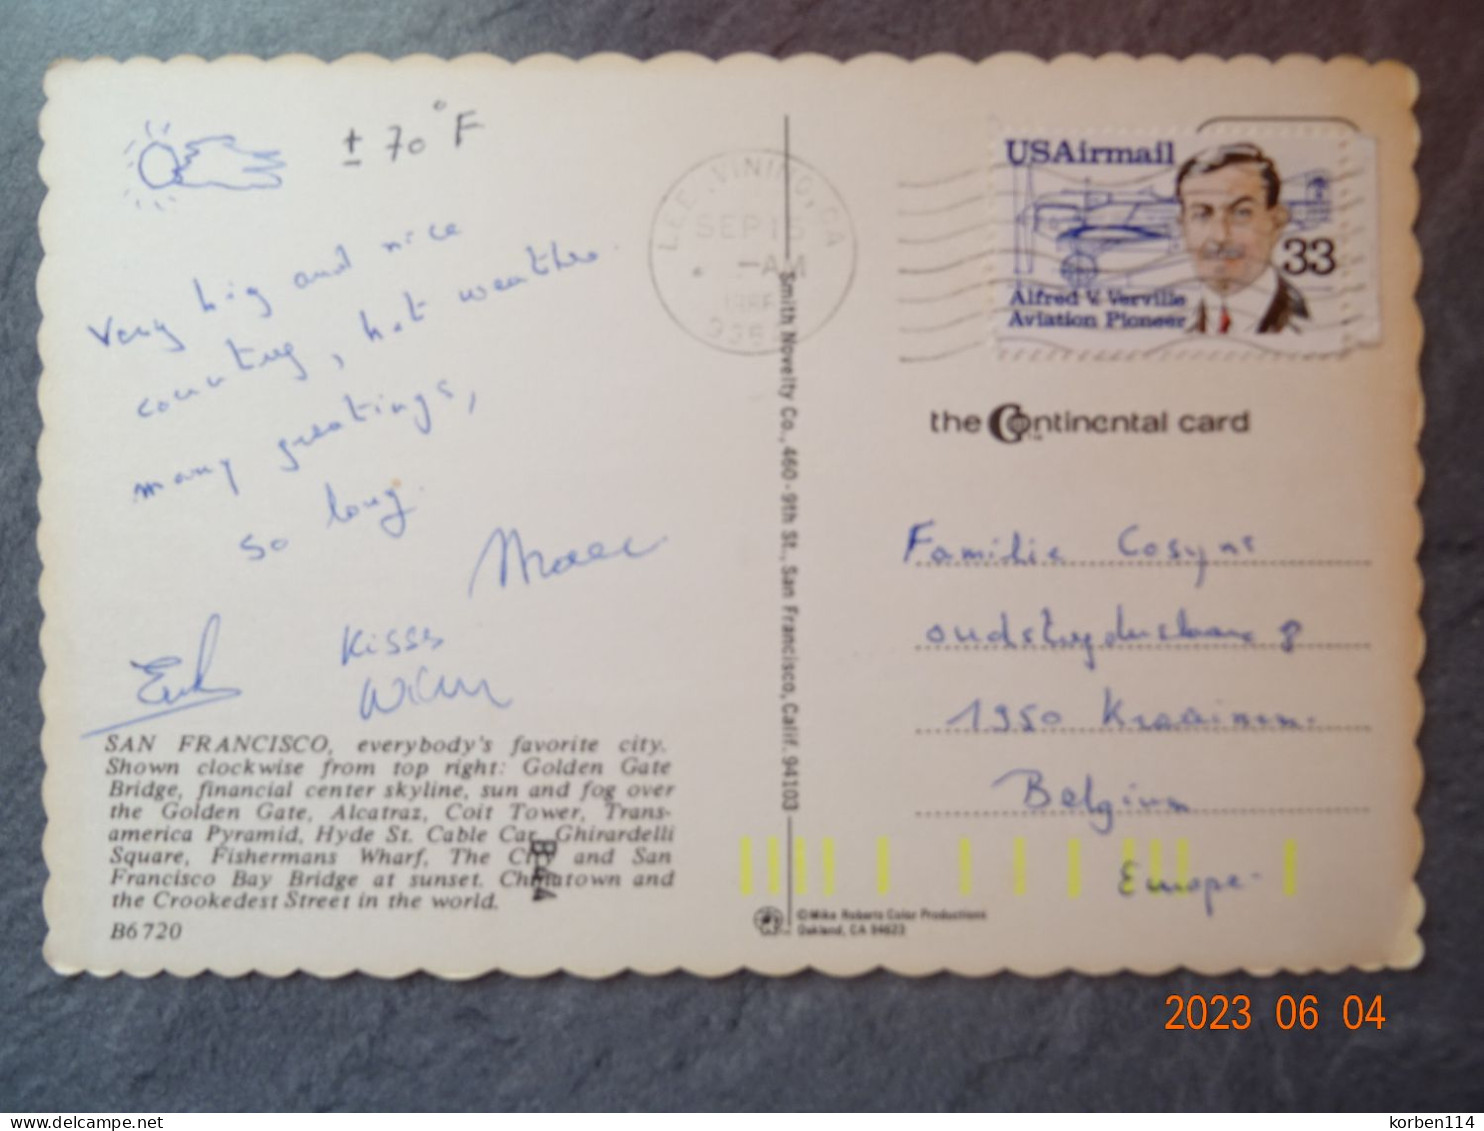 ± 70 °F
Very big and nice
country, hot weather.
many greetings,
so long.
Marc
Kisses
Wim
SAN FRANCISCO, everybody's favorite city.
Shown clockwise from top right: Golden Gate
Bridge, financial center skyline, sun and fog over
the Golden Gate, Alcatraz, Coit Tower, Trans-
america Pyramid, Hyde St. Cable Car, Ghirardelli
Square, Fishermans Wharf, The City and San
Francisco Bay Bridge at sunset. Chinatown and
the Crookedest Street in the world.
B6720
LEE VINING, CA
SEP 15
AM
Smith Novelty Co., 460 - 9th St., San Francisco, Calif. 94103
USAirmail
33
Alfred V. Verville
Aviation Pioneer
the Continental card
Familie Cosyns
8
1950 Kraainem.
Belgium
Europe-
©Mike Roberts Color Productions
Oakland, CA 94623
2023 06 04
delcampe.net
korben114